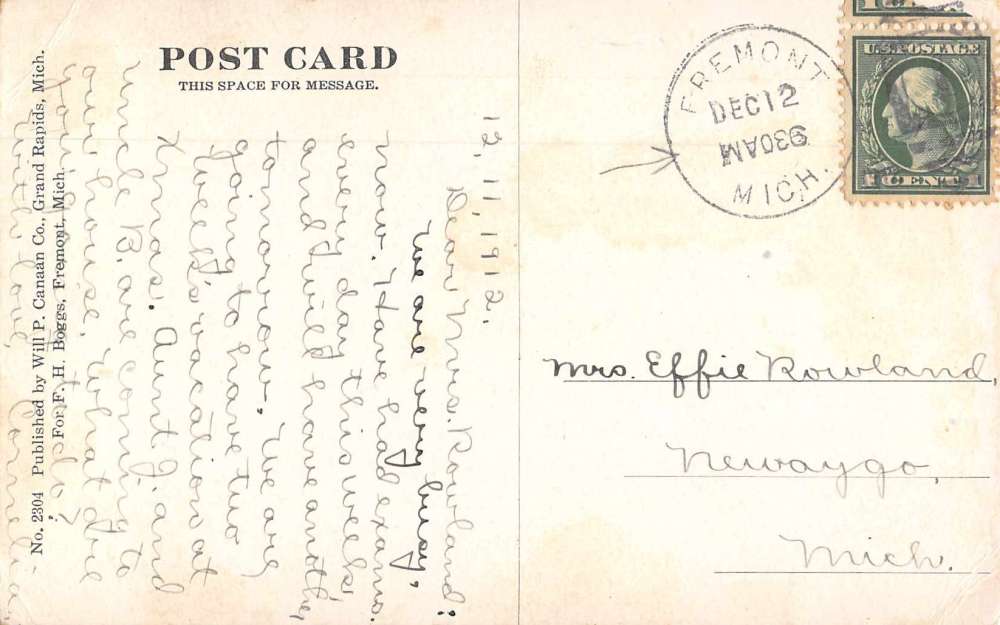 POST CARD
THIS SPACE FOR MESSAGE.
12, 11, 1912.
Dear Mrs. Rowland:
We are very busy,
now. Have had exams.
every day this week,
and will have another,
tomorrow. We are
going to have two
week's vacation at
Xmas. Aunt J. and
uncle B. are coming to
our house. What are
you going to do?
With love, Cornelia
No. 2304 Published by Will P. Canaan Co., Grand Rapids, Mich.
For F. H. Boggs, Fremont, Mich.
FREMONT
DEC 12
930AM
MICH.
U.S. POSTAGE
1 CENT 1
Mrs. Effie Rowland,
Newaygo,
Mich.